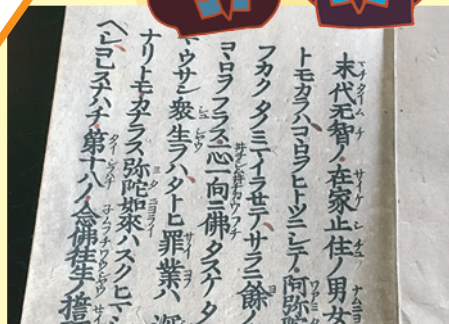 末代无智ノ在家止住ノ男女
トモカラハコヽロヲヒトツニシテ阿弥陀
フカクタノミマイラセテサラニ餘ノ
コヽロヲフラス一心一向ニ佛タスケタ
マウサン衆生ヲハタトヒ罪業ハ深
ナリトモカナラス弥陀如來ハスクヒマシ
ヘシコレスナハチ第十八ノ念佛往生ノ誓願